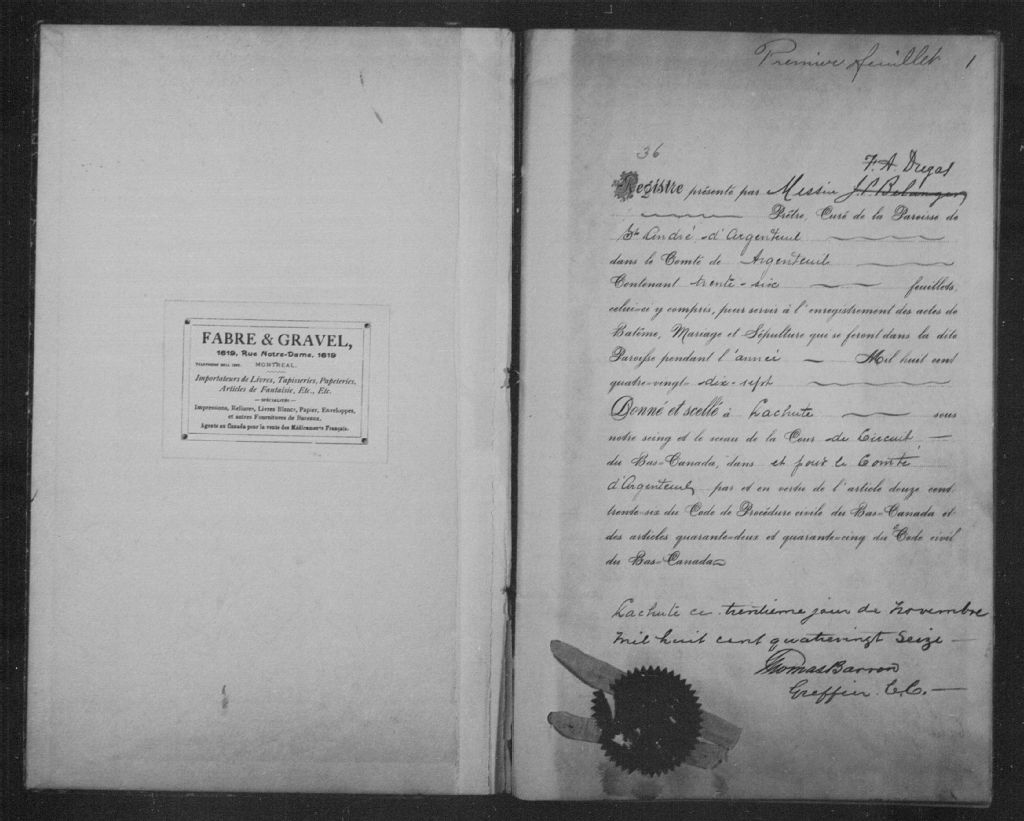 FABRE & GRAVEL,
1619, Rue Notre-Dame, 1619
MONTREAL.
Importateurs de Livres, Tapisseries, Papeteries,
Articles de Fantaisie, Etc., Etc.
SPÉCIALITÉS
Impressions, Reliures, Livres Blancs, Papier, Enveloppes,
et autres Fournitures de Bureaux.
Agents au Canada pour la vente des Médicaments Français.
Premier feuillet 1
36
F. A. Dugas
Registre présenté par Messire J. P. Belanger
Prêtre, Curé de la Paroisse de
St André d'Argenteuil
dans le Comté de Argenteuil
Contenant trente-six feuillets,
celui-ci y compris, pour servir à l'enregistrement des actes de
Batême, Mariage et Sépulture qui se feront dans la dite
Paroisse pendant l'année Mil huit cent
quatre-vingt-dix-sept
Donné et scellé à Lachute sous
notre seing et le sceau de la Cour de Circuit
du Bas-Canada, dans et pour le Comté
d'Argenteuil par et en vertu de l'article douze cent
trente-six du Code de Procédure civile du Bas-Canada et
des articles quarante-deux et quarante-cinq du Code civil
du Bas-Canada
Lachute ce trentième jour de novembre
Mil huit cent quatrevingt seize
Thomas Barron
Greffier C.C.